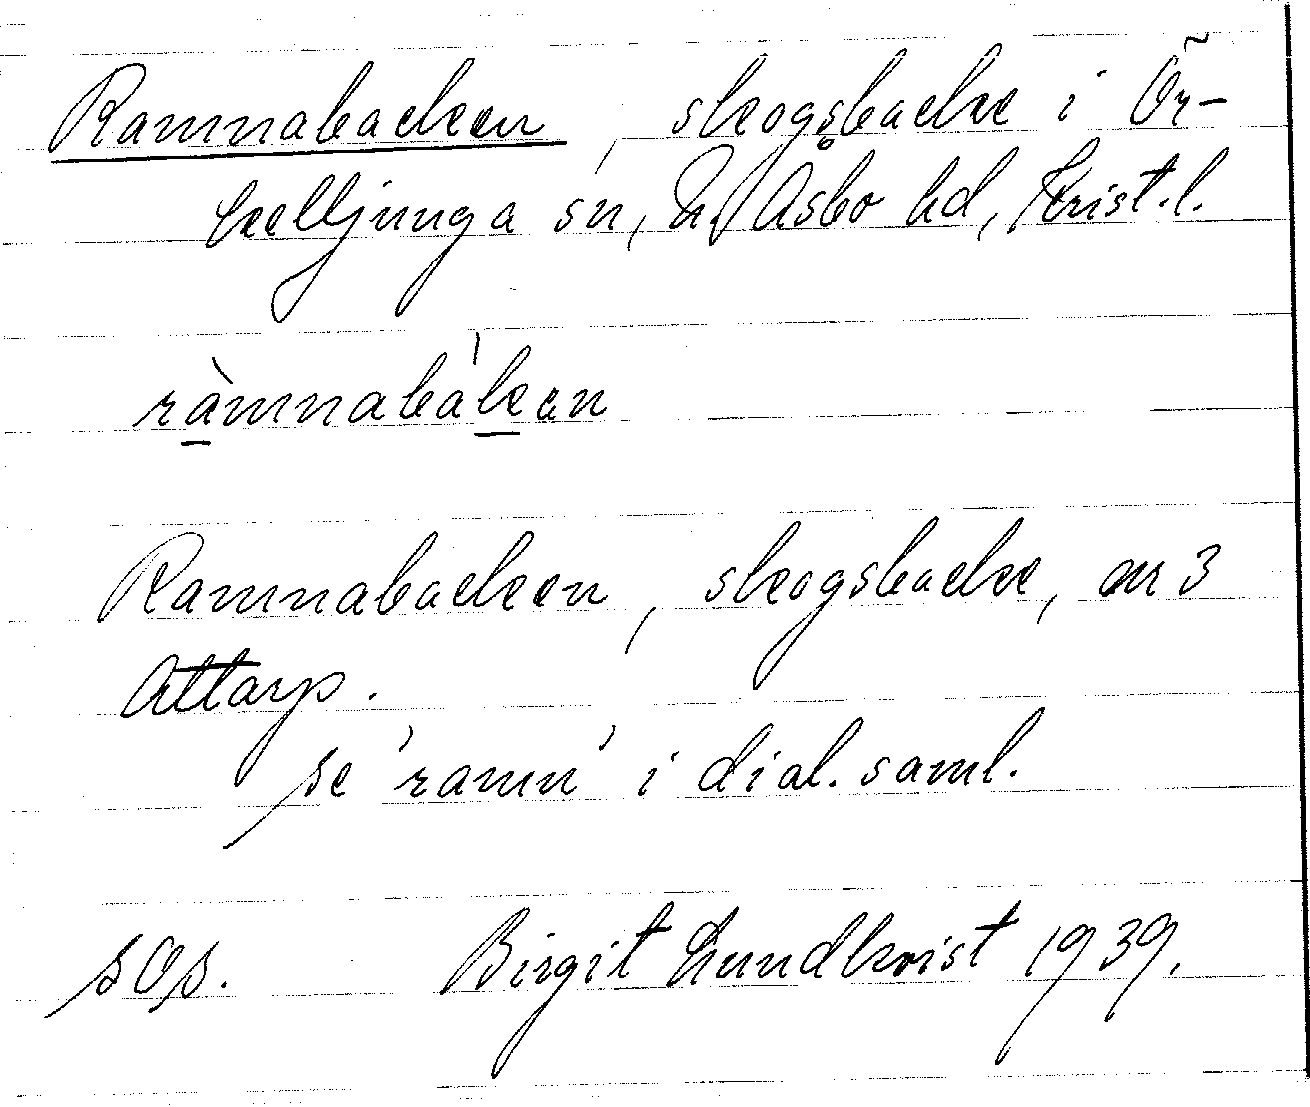 Ramnabacken, skogsbacke i Ör-
kelljunga sn, N. Åsbo hd, Krist.l.
ràmnabàkan
Ramnabacken, skogsbacke, nr 3
Attarp.
se 'ramn' i dial. saml.
sOs. Birgit Lundkvist 1939.